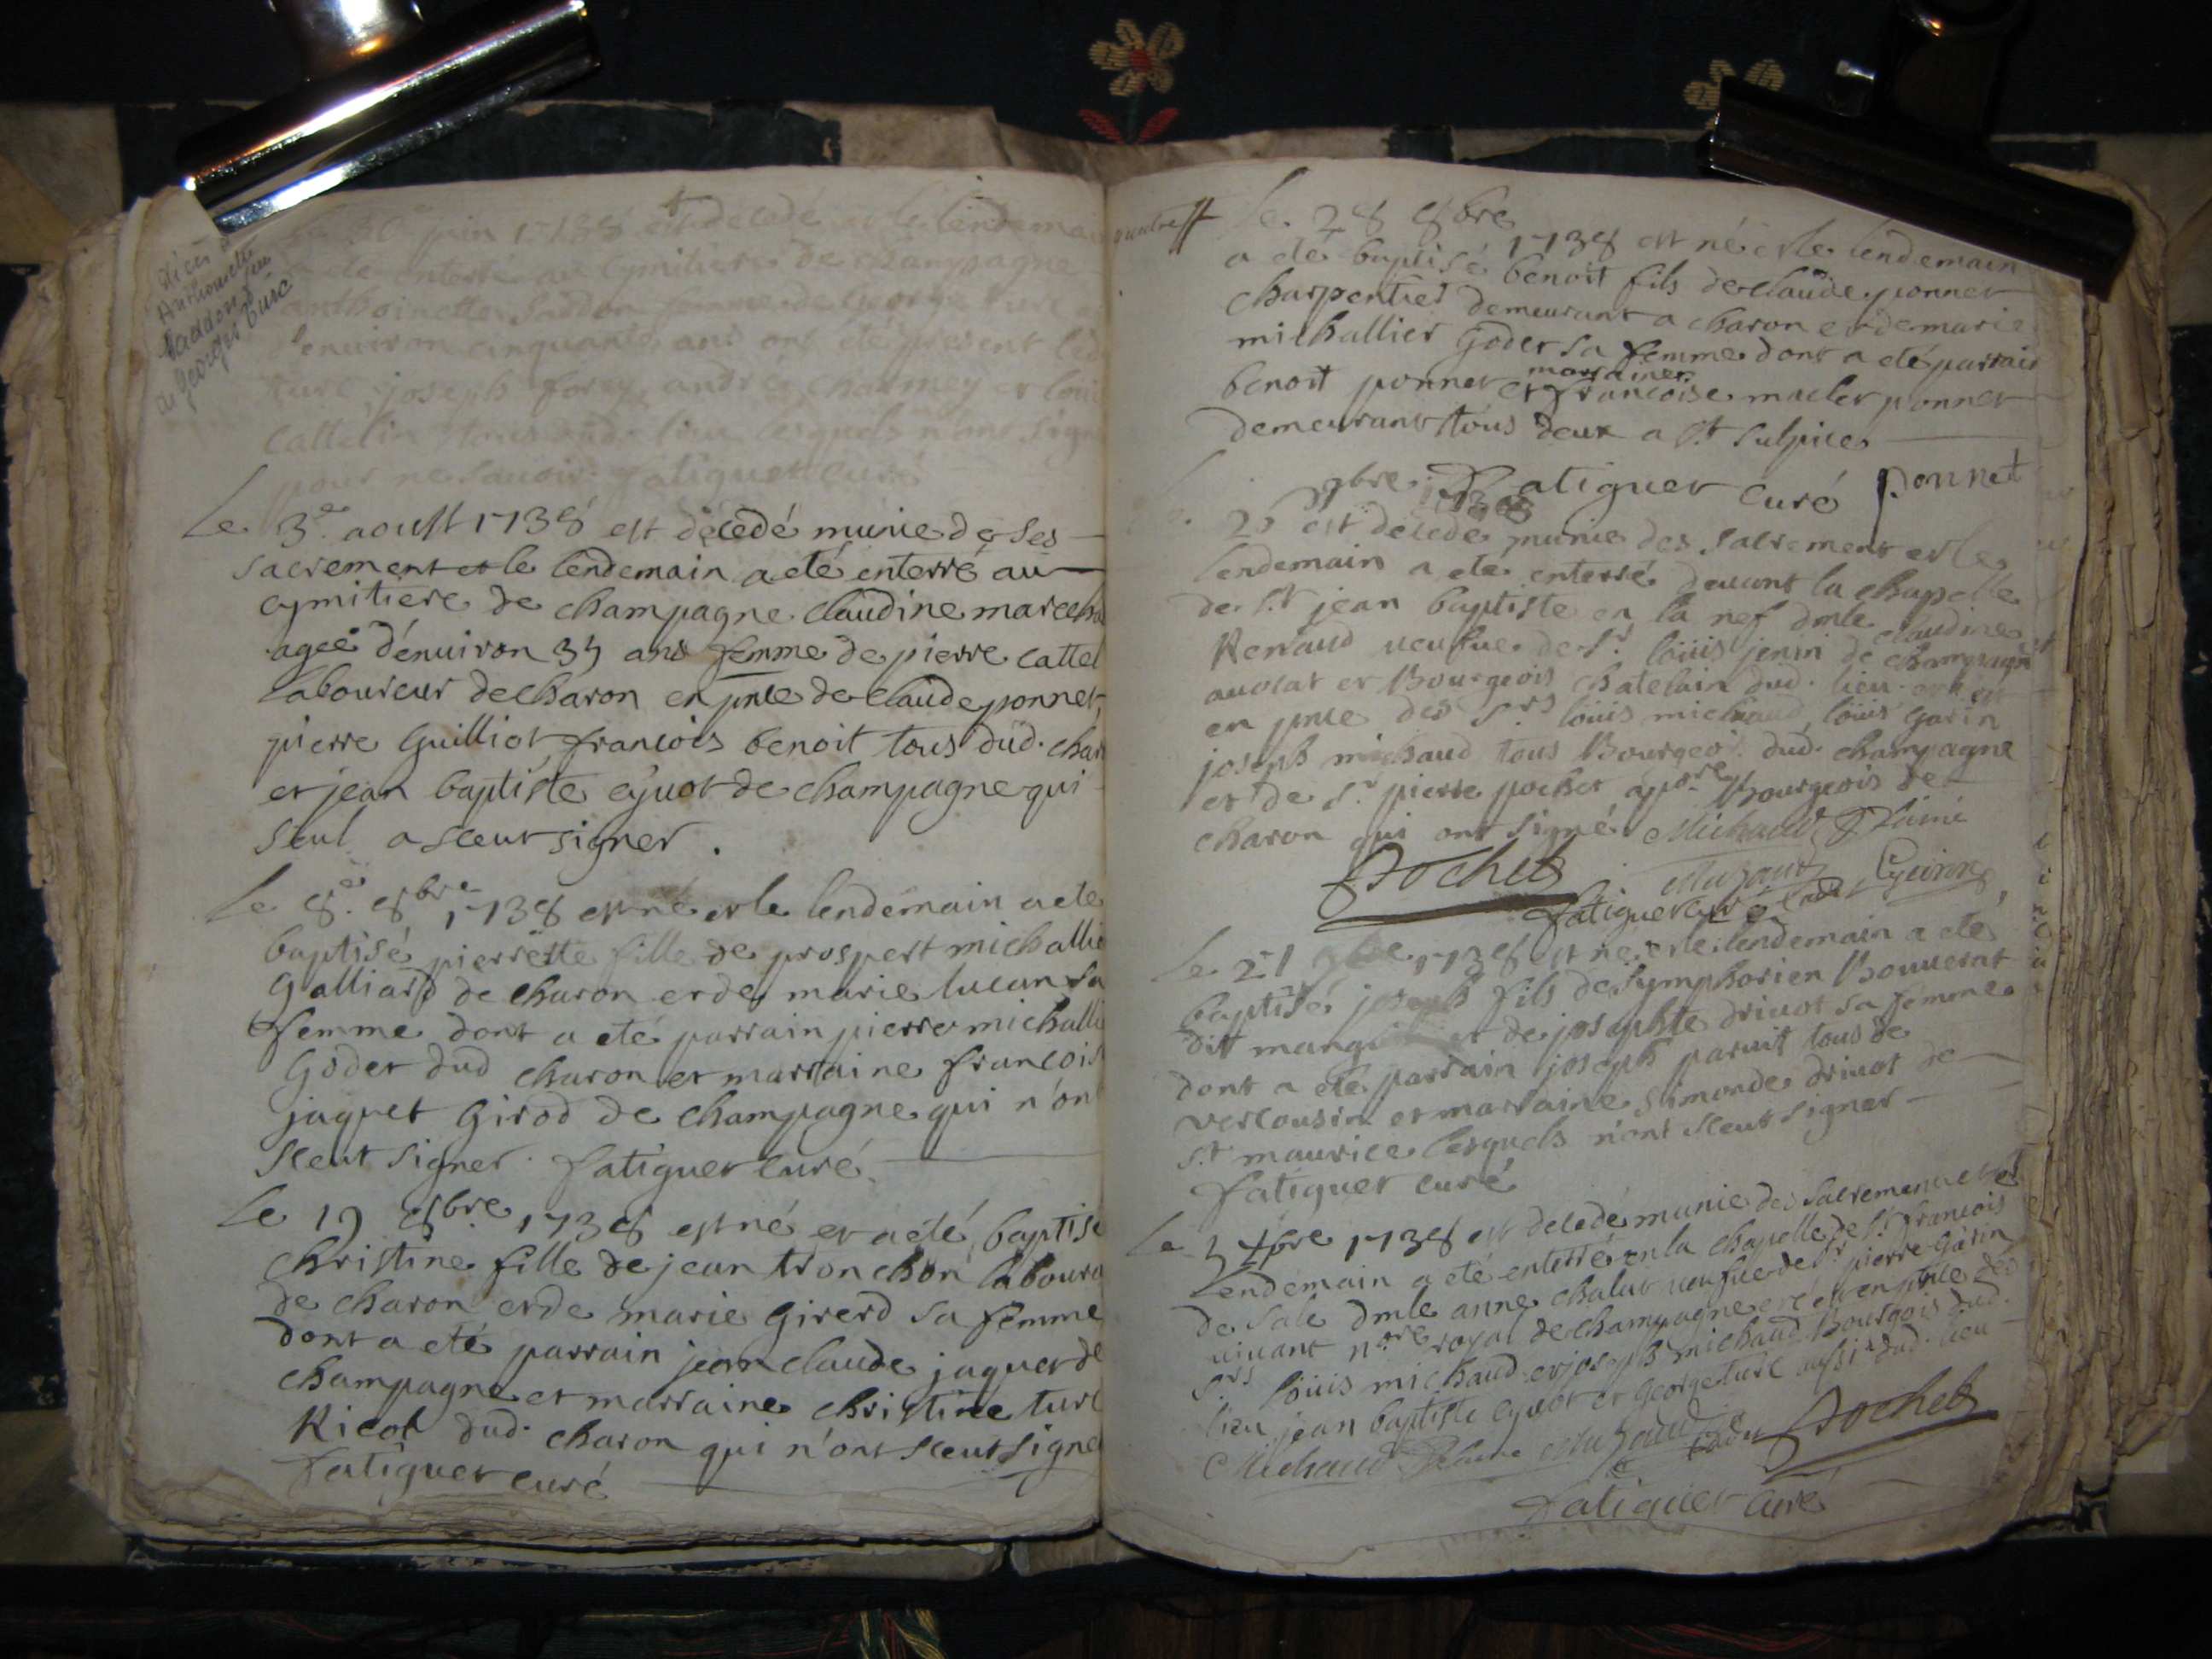 Le 30e juin 1738 est decedé et le lendemain
a eté enterré au cymitiere de champagne
anthoinette Laddon femme de George turc
d'enuiron cinquante ans ont eté present led
turc, joseph forey, andré charmey et louis
Cattelin tous dud. lieu lesquels n'ont signé
pour ne sauoir. fatiguet curé
anthoinette
Laddon
de George turc
Le 3e aoust 1738 est décedé munie de ses
sacrement et le lendemain a eté enterré au
cymitiere de champagne claudine marcelha
agée d'enuiron 35 ans femme de pierre cattel
laboureur de charon en pnce de claude ponnet,
pierre Guilliot, francois benoit tous dud. char
et jean baptiste cyuot de champagne qui
seul a sceut signer.
Le 8e 8bre 1738 est né et le lendemain a ete
baptisé pierrette fille de prospert michallie
Galliard de charon et de marie lucun sa
femme dont a eté parrain pierre michalli
Godet dud charon et marraine francois
jaquet Girod de champagne qui n'on
sceut signer. fatiguet curé
Le 19 8bre 1738 est né et a eté baptisé
christine fille de jean tronchon laboure
de charon et de marie Girerd sa femme
dont a eté parrain jean claude jaquet de
champagne et marraine christine turc
Ricol dud. charon qui n'ont sceut signe
fatiguet curé
Le 28 8bre 1738 est né et le lendemain
a eté baptisé benoit fils de claude ponnet
charpentier demeurant a charon et de marie
michallier Godet sa femme dont a eté parrain
benoit ponnet et marraine francoise maclet ponnet
demeurant tous deux a st sulpice
fatiguet curé ponnet
Le 20 9bre 1738 est decedé munie des sacrement et le
lendemain a ete enterré deuant la chapelle
de st jean baptiste en la nef dmle claudine
Renaud ueufue de sr louis jenin de champagne
auocat et Bourgeois chatelain dud. lieu
en pnce des srs louis michaud, louis garin
joseph michaud tous Bourgeois dud. champagne
et de sr pierre pochet apore Bourgeois de
charon qui ont signé. Michaud Laîné
Pochet Michaud cadet Garin
fatiguet curé
Le 21 9bre 1738 est né et le lendemain a eté
baptisé joseph fils de symphorien Bouuerat
dit et de josephte driuot sa femme
dont a eté parrain joseph paruit tous de
vercousin et marraine simonde driuot de
st maurice lesquels n'ont sceut signer
fatiguet curé
Le 5 xbre 1738 est decedé munie des sacrement et le
lendemain a eté enterré en la chapelle de st francois
de sale dmle anne chalut ueufue de sr pierre Garin
uiuant nore royal de champagne et en pnce des
srs louis michaud et joseph michaud Bourgois dud.
lieu jean baptiste cyuot et George turc aussi dud. lieu
Michaud Laîné Michaud cadet Pochet
fatiguet curé